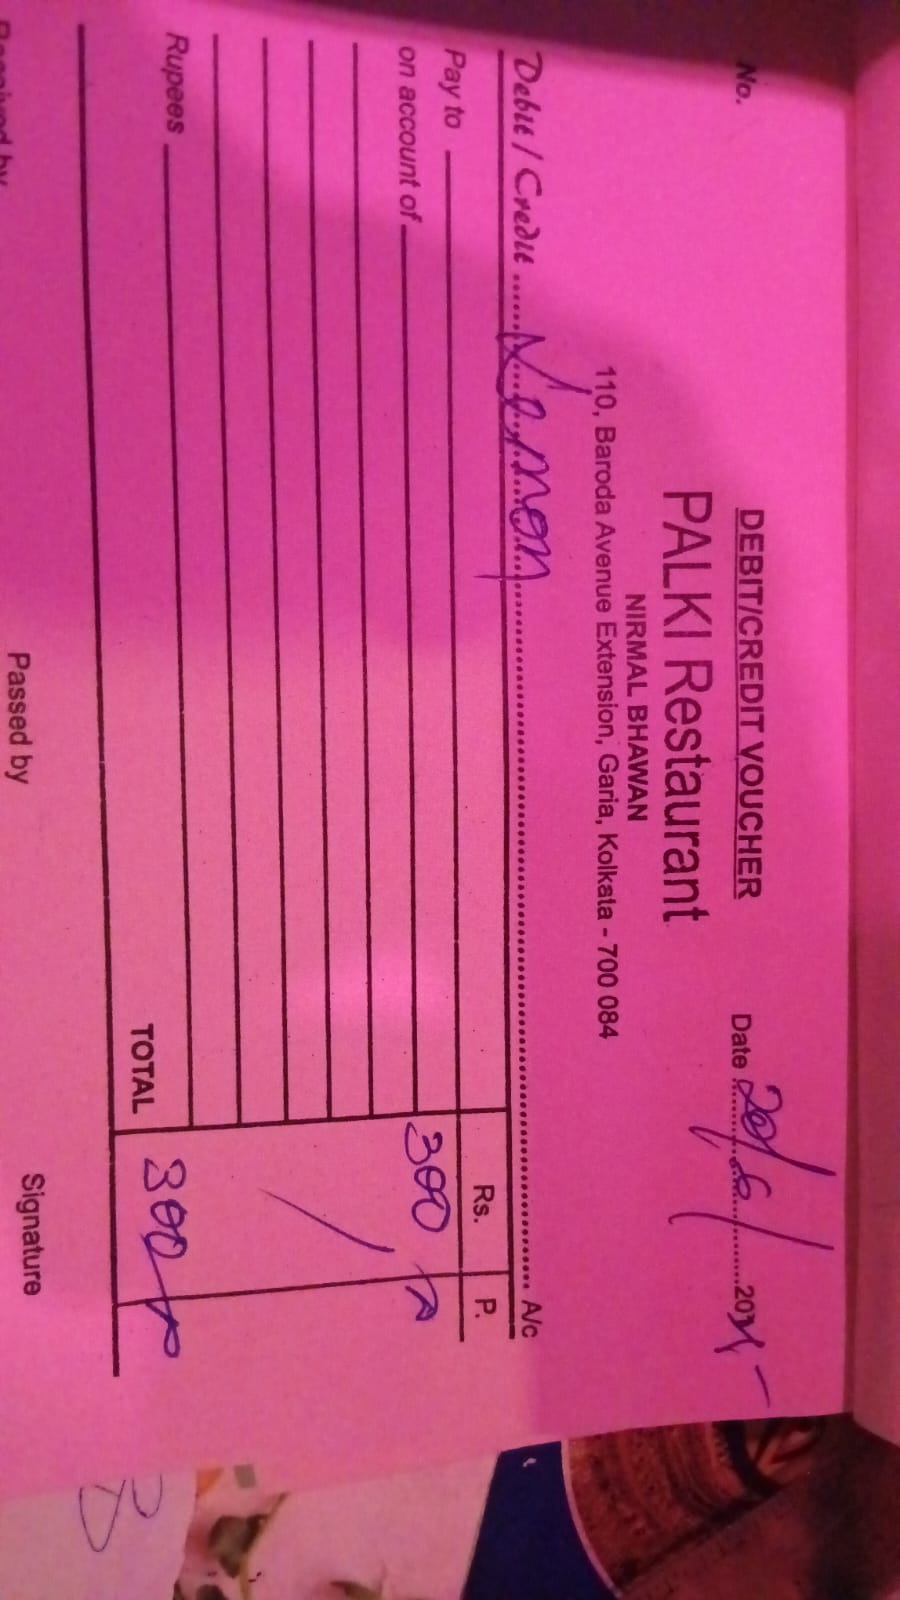 DEBIT/CREDIT VOUCHER
No.
Date 20/6/2025
PALKI Restaurant
NIRMAL BHAWAN
110, Baroda Avenue Extension, Garia, Kolkata - 700 084
Debit / Credit ...... Lemon ...... A/c
Rs. P.
Pay to
on account of 300
Rupees
TOTAL 300
Received by Passed by Signature